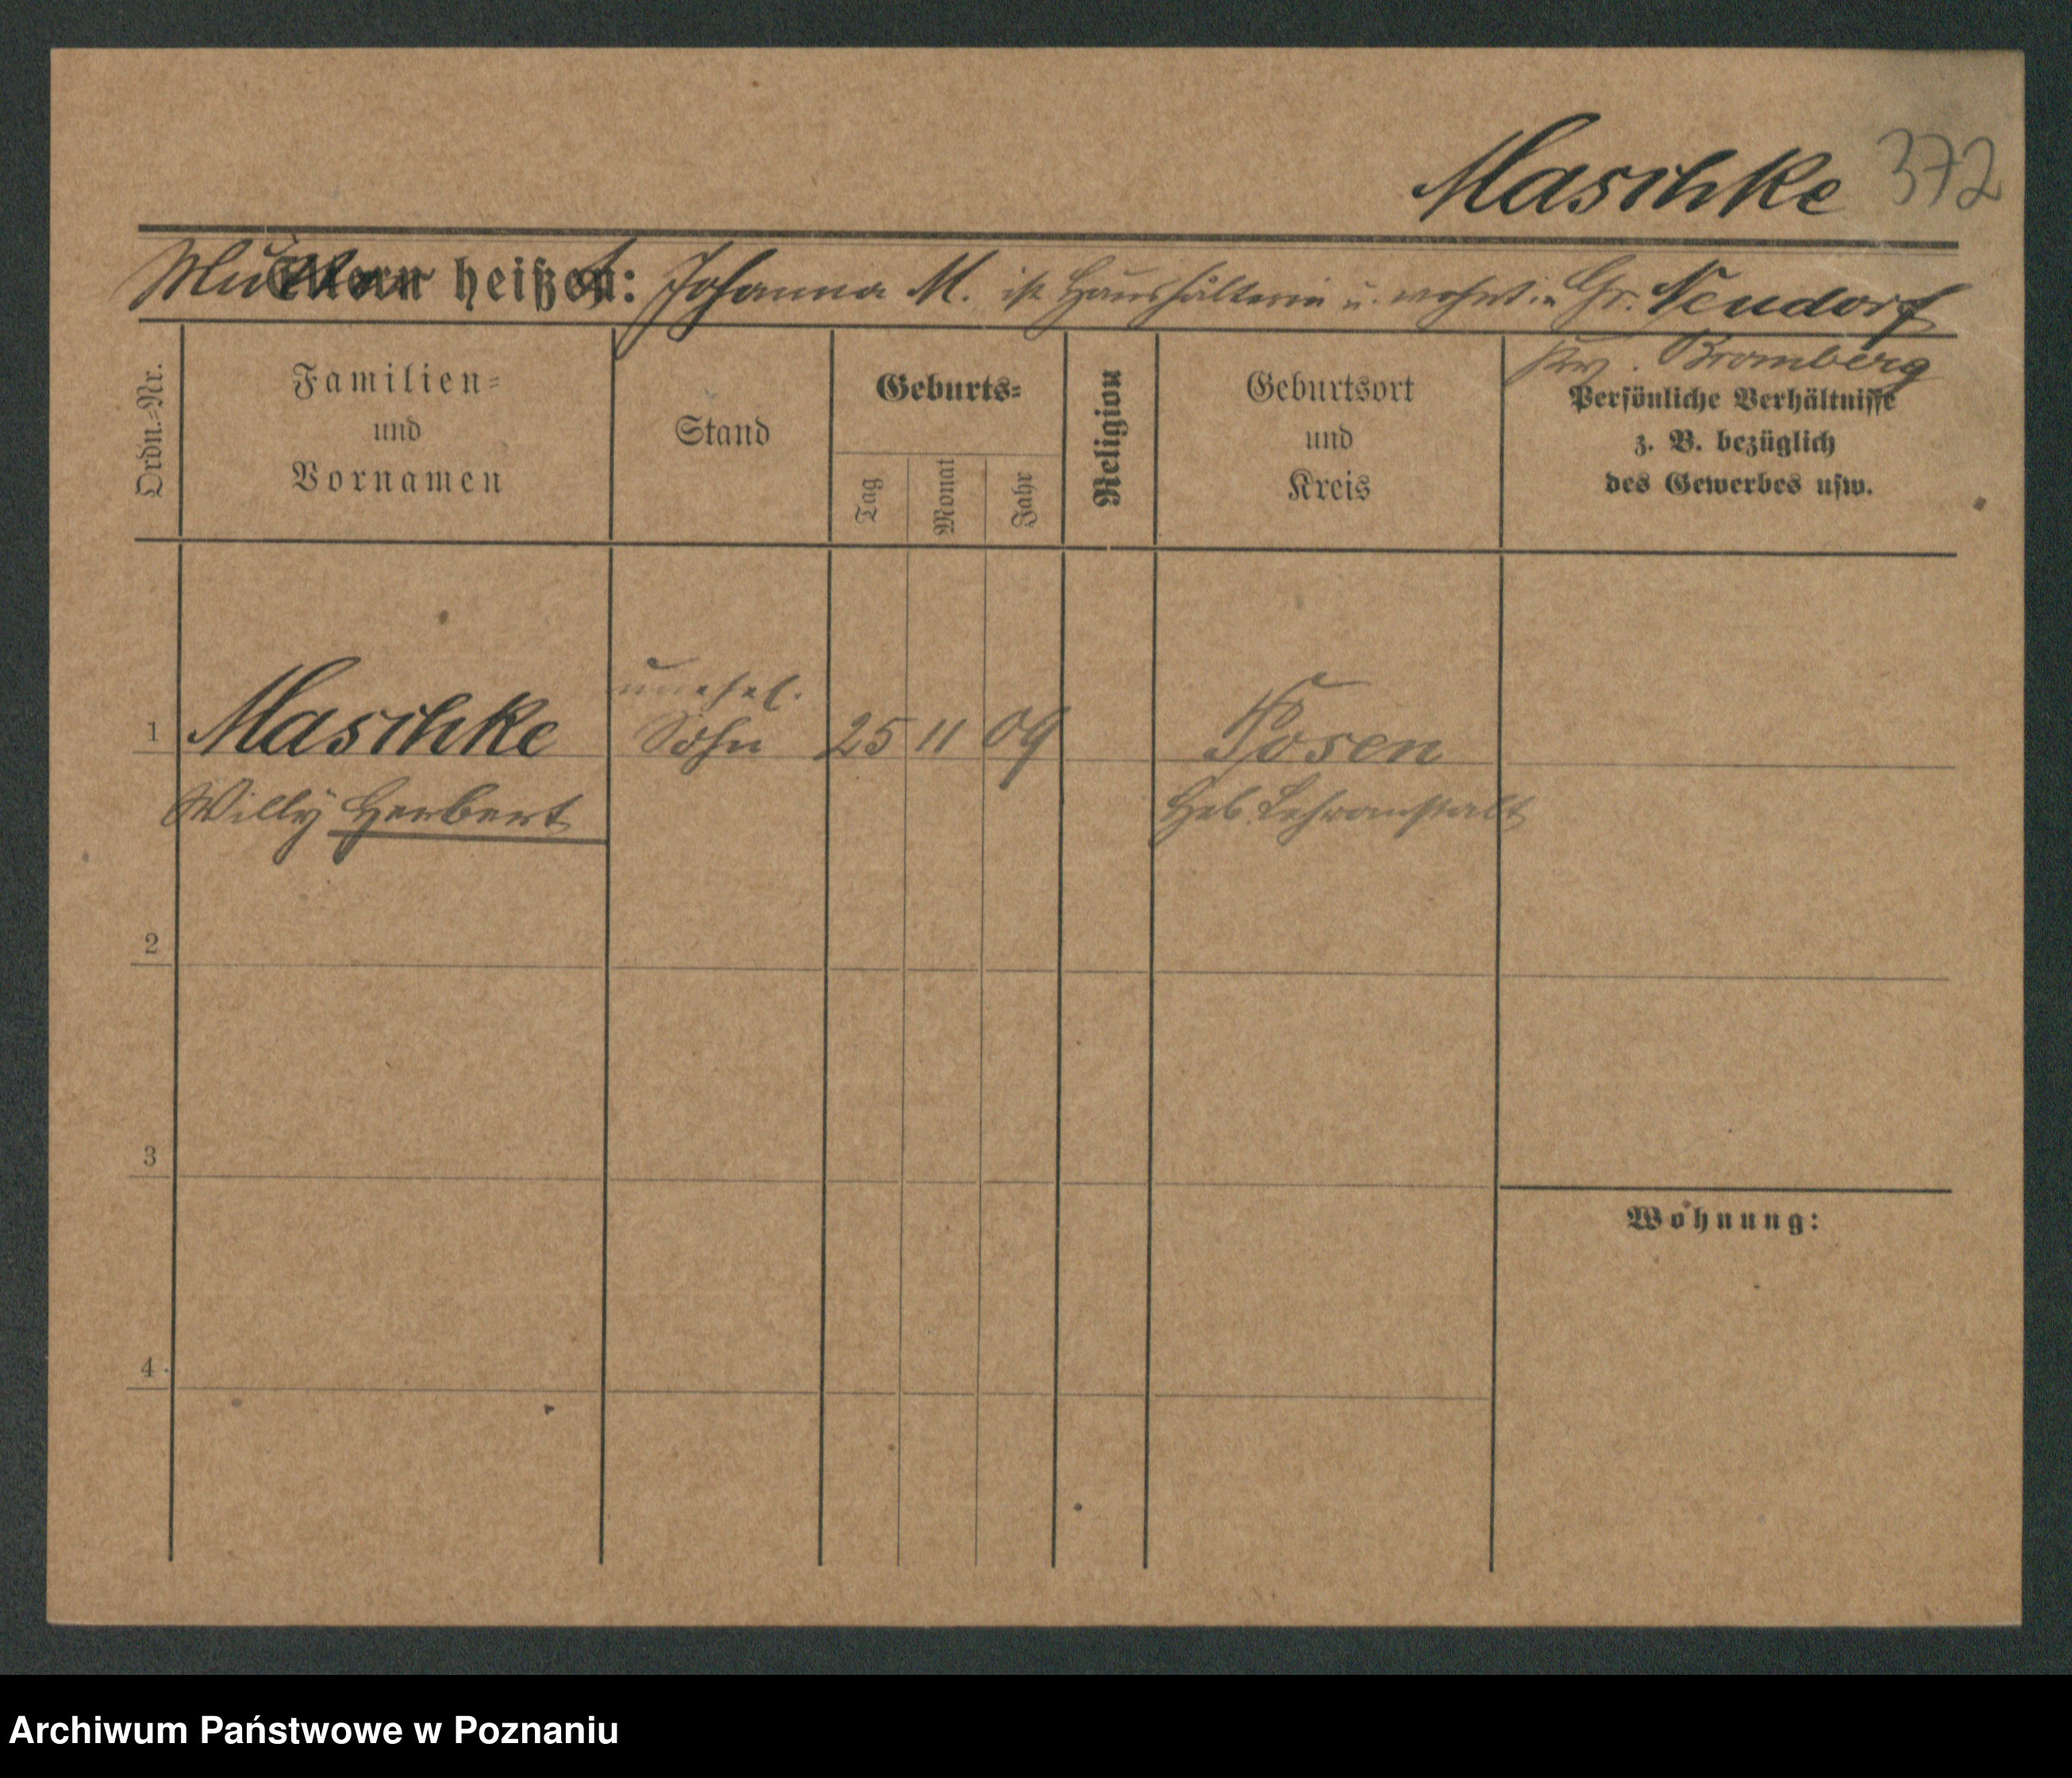 Maschke 372
Mutter heißt: Johanna M. ist Haushälterin u. wohnt in Gr. Neudorf
Krs. Bromberg
Ordn.=Nr.
Familien=
und
Vornamen
Stand
Geburts=
Tag
Monat
Jahr
Religion
Geburtsort
und
Kreis
Persönliche Verhältnisse
z. B. bezüglich
des Gewerbes usw.
unehel.
1 Maschke Sohn 25 11 09 Posen
Willy Herbert Heb. Lehranstalt
2
3
Wohnung:
4
Archiwum Państwowe w Poznaniu